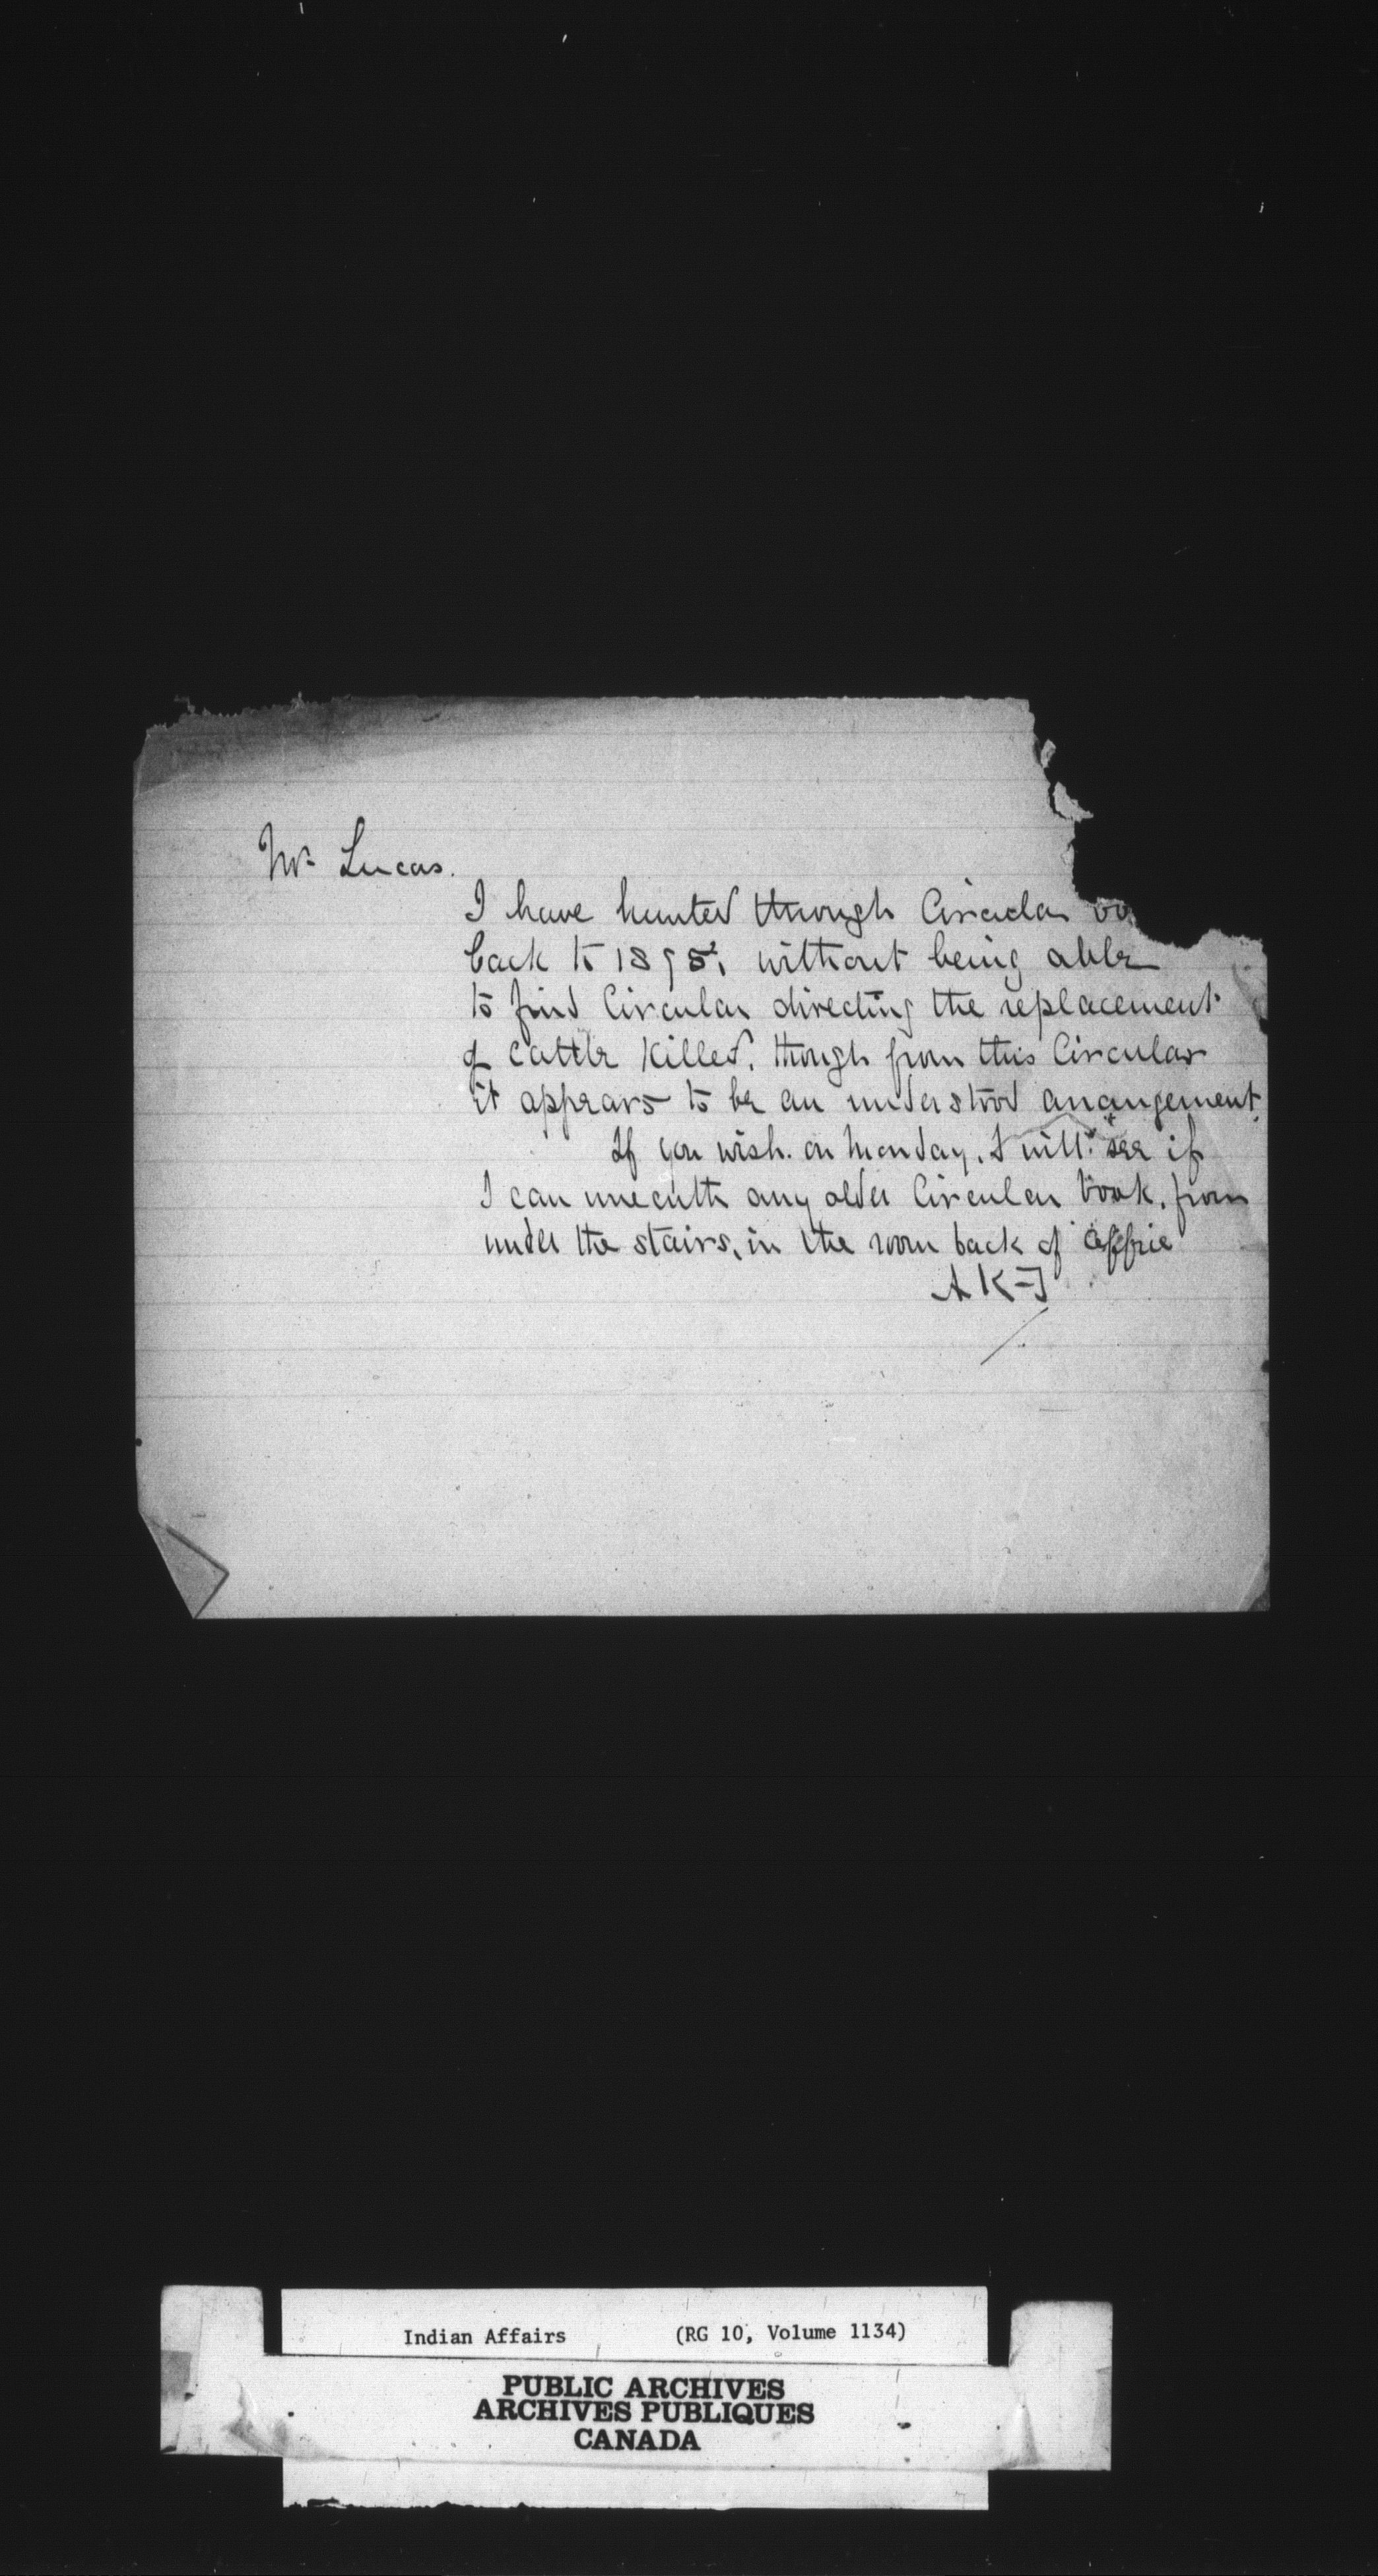 Mr Lucas.
I have hunted through Circular
back to 1895, without being able
to find Circular directing the replacement
of cattle killed, though from this Circular
it appears to be an understood arrangement.
If you wish. on Monday, I will see if
I can unearth any older Circular book, from
under the stairs, in the room back of office
AK-J
Indian Affairs (RG 10, Volume 1134)
PUBLIC ARCHIVES
ARCHIVES PUBLIQUES
CANADA